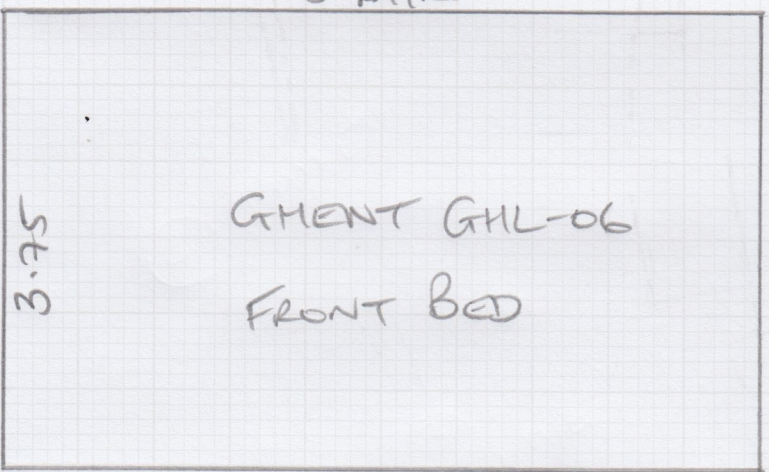 3.75
GHENT GHL-06
FRONT BED